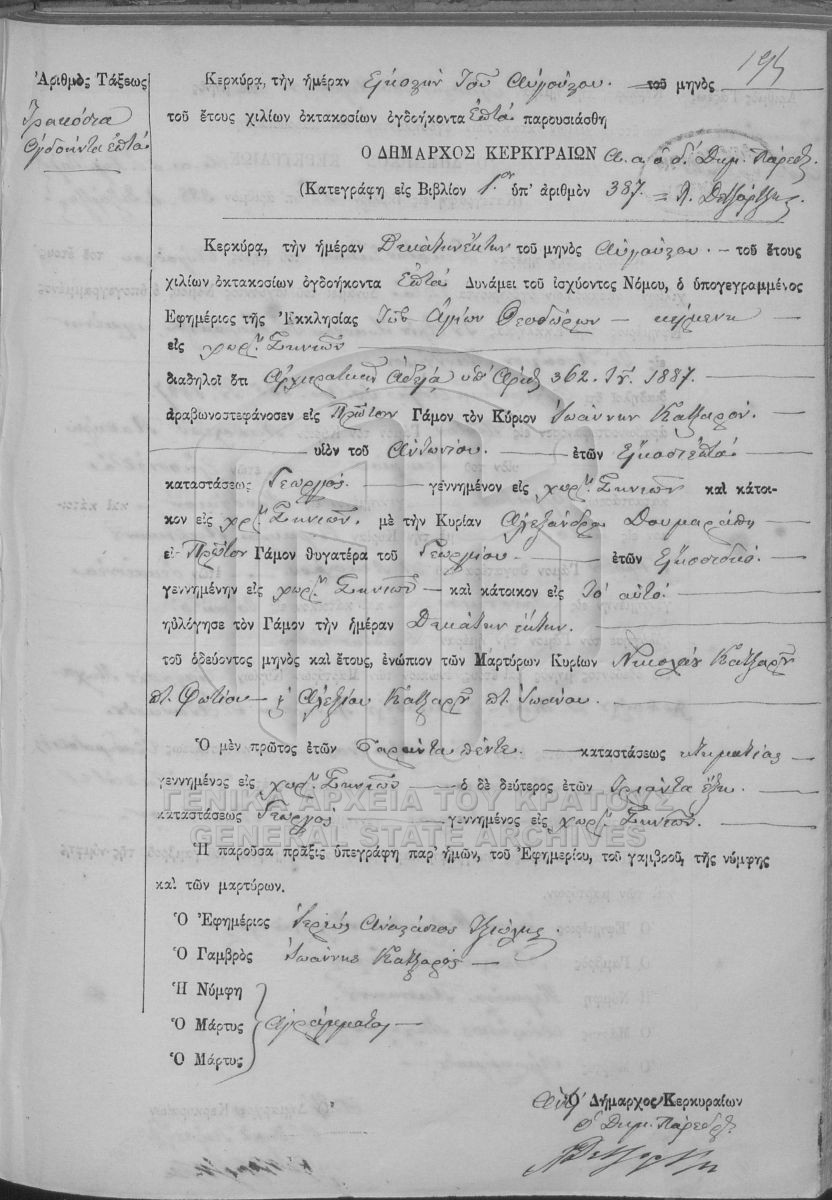 195
Ἀριθμὸς Τάξεως
Τριακόσια
Ὀγδοήντα ἑπτά
Κερκύρα, τὴν ἡμέραν Εἰκοστὴν Τοῦ Αὐγούστου. τοῦ μηνὸς
τοῦ ἔτους χιλίων ὀκτακοσίων ὀγδοήκοντα Ἑπτά παρουσιάσθη
Ο ΔΗΜΑΡΧΟΣ ΚΕΡΚΥΡΑΙΩΝ Α. α. ὁ δ. Δημ. Πάρεδρ.
(Κατεγράφη εἰς Βιβλίον 1ον ὑπ' ἀριθμὸν 387.
Κερκύρᾳ, τὴν ἡμέραν Δεκάτην ἕκτην τοῦ μηνὸς Αὐγούστου. — τοῦ ἔτους
χιλίων ὀκτακοσίων ὀγδοήκοντα Ἑπτά Δυνάμει τοῦ ἰσχύοντος Νόμου, ὁ ὑπογεγραμμένος
Ἐφημέριος τῆς Ἐκκλησίας Τῶν Ἁγίων Θεοδώρων — κειμένη
εἰς χωρ. Σινιῶν
διαδηλοῖ ὅτι Ἀρχιερατικῇ Ἀδείᾳ ὑπ' Ἀριθ 362. 1887.
ἀραβωνοστεφάνοσεν εἰς Πρῶτον Γάμον τὸν Κύριον Ἰωάννην Κάτζαρόν.
υἱὸν τοῦ Ἀντωνίου. — ἐτῶν Εἰκοσιεπτά
καταστάσεως Γεωργός. — γεννημένον εἰς χωρ. Σινιῶν καὶ κάτοι-
κον εἰς χωρ. Σινιῶν. μὲ τὴν Κυρίαν Ἀλεξάνδρα Δουμαράπη
εἰς Πρῶτον Γάμον θυγατέρα τοῦ Γεωργίου — ἐτῶν Εἰκοσιδιό.
γεννημένην εἰς χωρ. Σινιῶν — καὶ κάτοικον εἰς Τὸ αὐτό.
ηὐλόγησε τὸν Γάμον τὴν ἡμέραν Δεκάτην ἕκτην.
τοῦ ὁδεύοντος μηνὸς καὶ ἔτους, ἐνώπιον τῶν Μαρτύρων Κυρίων Νικολάου Κάτζαρη
πτ. Φωτίου — κ Ἀλεξίου Κάτζαρη πτ. Ἰωάνου.
Ὁ μὲν πρῶτος ἐτῶν Σαράντα πέντε. — καταστάσεως κτηματίας
γεννημένος εἰς χωρ. Σινιῶν — ὁ δὲ δεύτερος ἐτῶν Τριάντα ἕξη.
καταστάσεως Γεωργός — γεννημένος εἰς χωρ. Σινιῶν.
ΓΕΝΙΚΑ ΑΡΧΕΙΑ ΤΟΥ ΚΡΑΤΟΥΣ
GENERAL STATE ARCHIVES
Ἡ παροῦσα πρᾶξις ὑπεγράφη παρ' ἡμῶν, τοῦ Ἐφημερίου, τοῦ γαμβροῦ, τῆς νύμφης
καὶ τῶν μαρτύρων.
Ὁ Ἐφημέριος Ἱερεύς Ἀναστάσιος
Ὁ Γαμβρὸς Ἰωάννης Κάτζαρός —
Ἡ Νύμφη
Ὁ Μάρτυς Ἀγράμματοι —
Ὁ Μάρτυς
Ὁ Δήμαρχος Κερκυραίων
ὁ Δημ. Πάρεδρ.